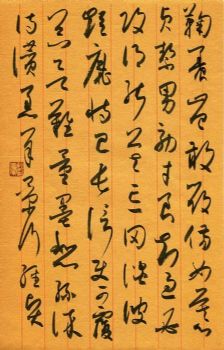 鞠養豈敢毀傷女慕
貞絜男效才良知過必
改得能莫忘罔談彼
短靡恃己長信使可覆
器欲難量墨悲絲染
詩讚羔羊景行維賢